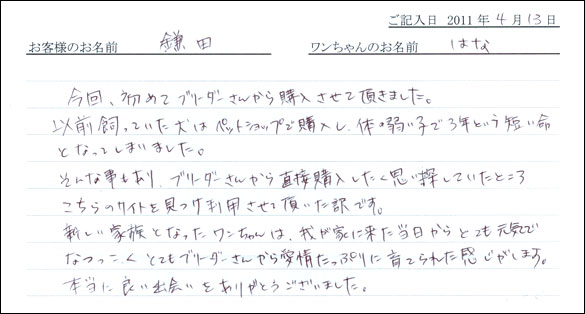 ご記入日 2011年4月13日
お客様のお名前 鎌田 ワンちゃんのお名前 はな
今回、初めてブリーダーさんから購入させて頂きました。
以前飼っていた犬はペットショップで購入し、体の弱い子で3年という短い命
となってしまいました。
そんな事もあり、ブリーダーさんから直接購入したく思い探していたところ
こちらのサイトを見つけ利用させて頂いた訳です。
新しい家族となったワンちゃんは、我が家に来た当日からとても元気で
なつっこく とてもブリーダーさんから愛情たっぷりに育てられた感じがします。
本当に良い出会いをありがとうございました。